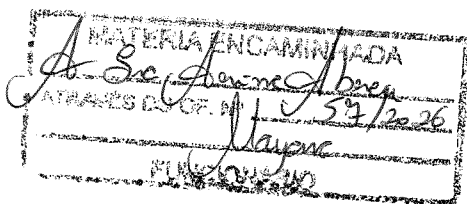 MATERIA ENCAMINHADA
A Sra Abreu
ATRAVÉS DO OF. Nº 57/2026
Mayane
FUNCIONÁRIO